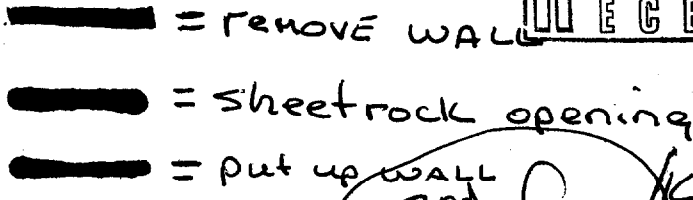 = remove WALL
= sheetrock opening
= put up WALL
and